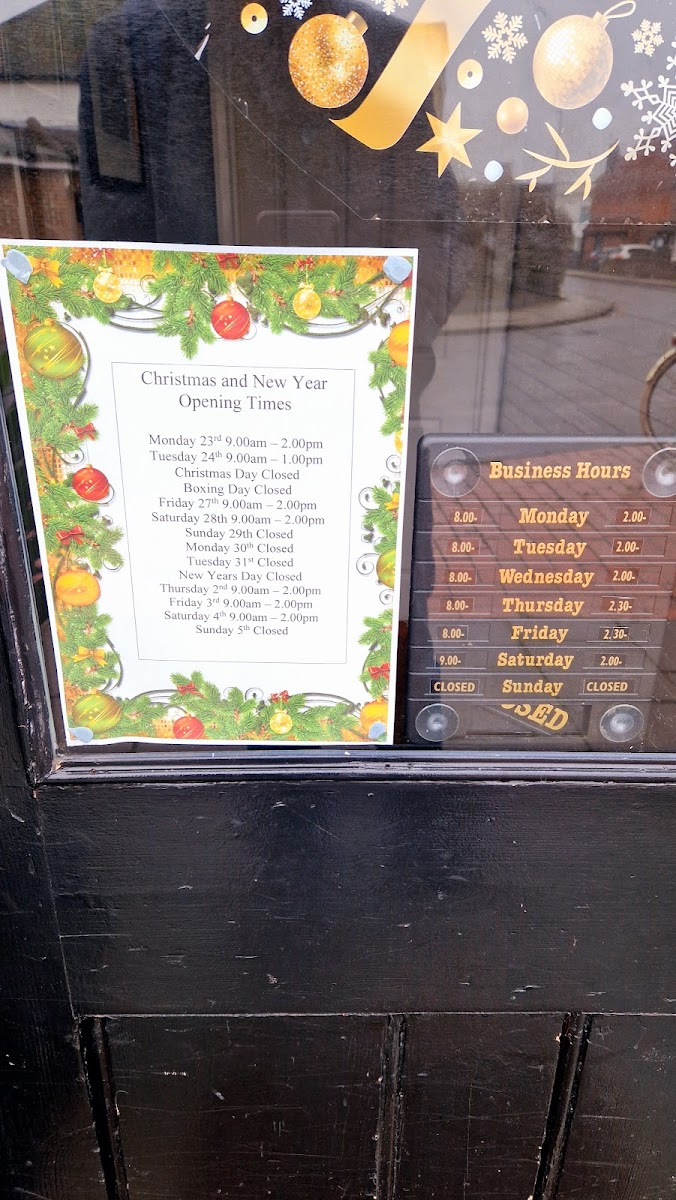 Christmas and New Year
Opening Times
Monday 23rd 9.00am – 2.00pm
Tuesday 24th 9.00am – 1.00pm
Christmas Day Closed
Boxing Day Closed
Friday 27th 9.00am – 2.00pm
Saturday 28th 9.00am – 2.00pm
Sunday 29th Closed
Monday 30th Closed
Tuesday 31st Closed
New Years Day Closed
Thursday 2nd 9.00am – 2.00pm
Friday 3rd 9.00am – 2.00pm
Saturday 4th 9.00am – 2.00pm
Sunday 5th Closed
Business Hours
8.00- Monday 2.00-
8.00- Tuesday 2.00-
8.00- Wednesday 2.00-
8.00- Thursday 2.30-
8.00- Friday 2.30-
9.00- Saturday 2.00-
CLOSED Sunday CLOSED